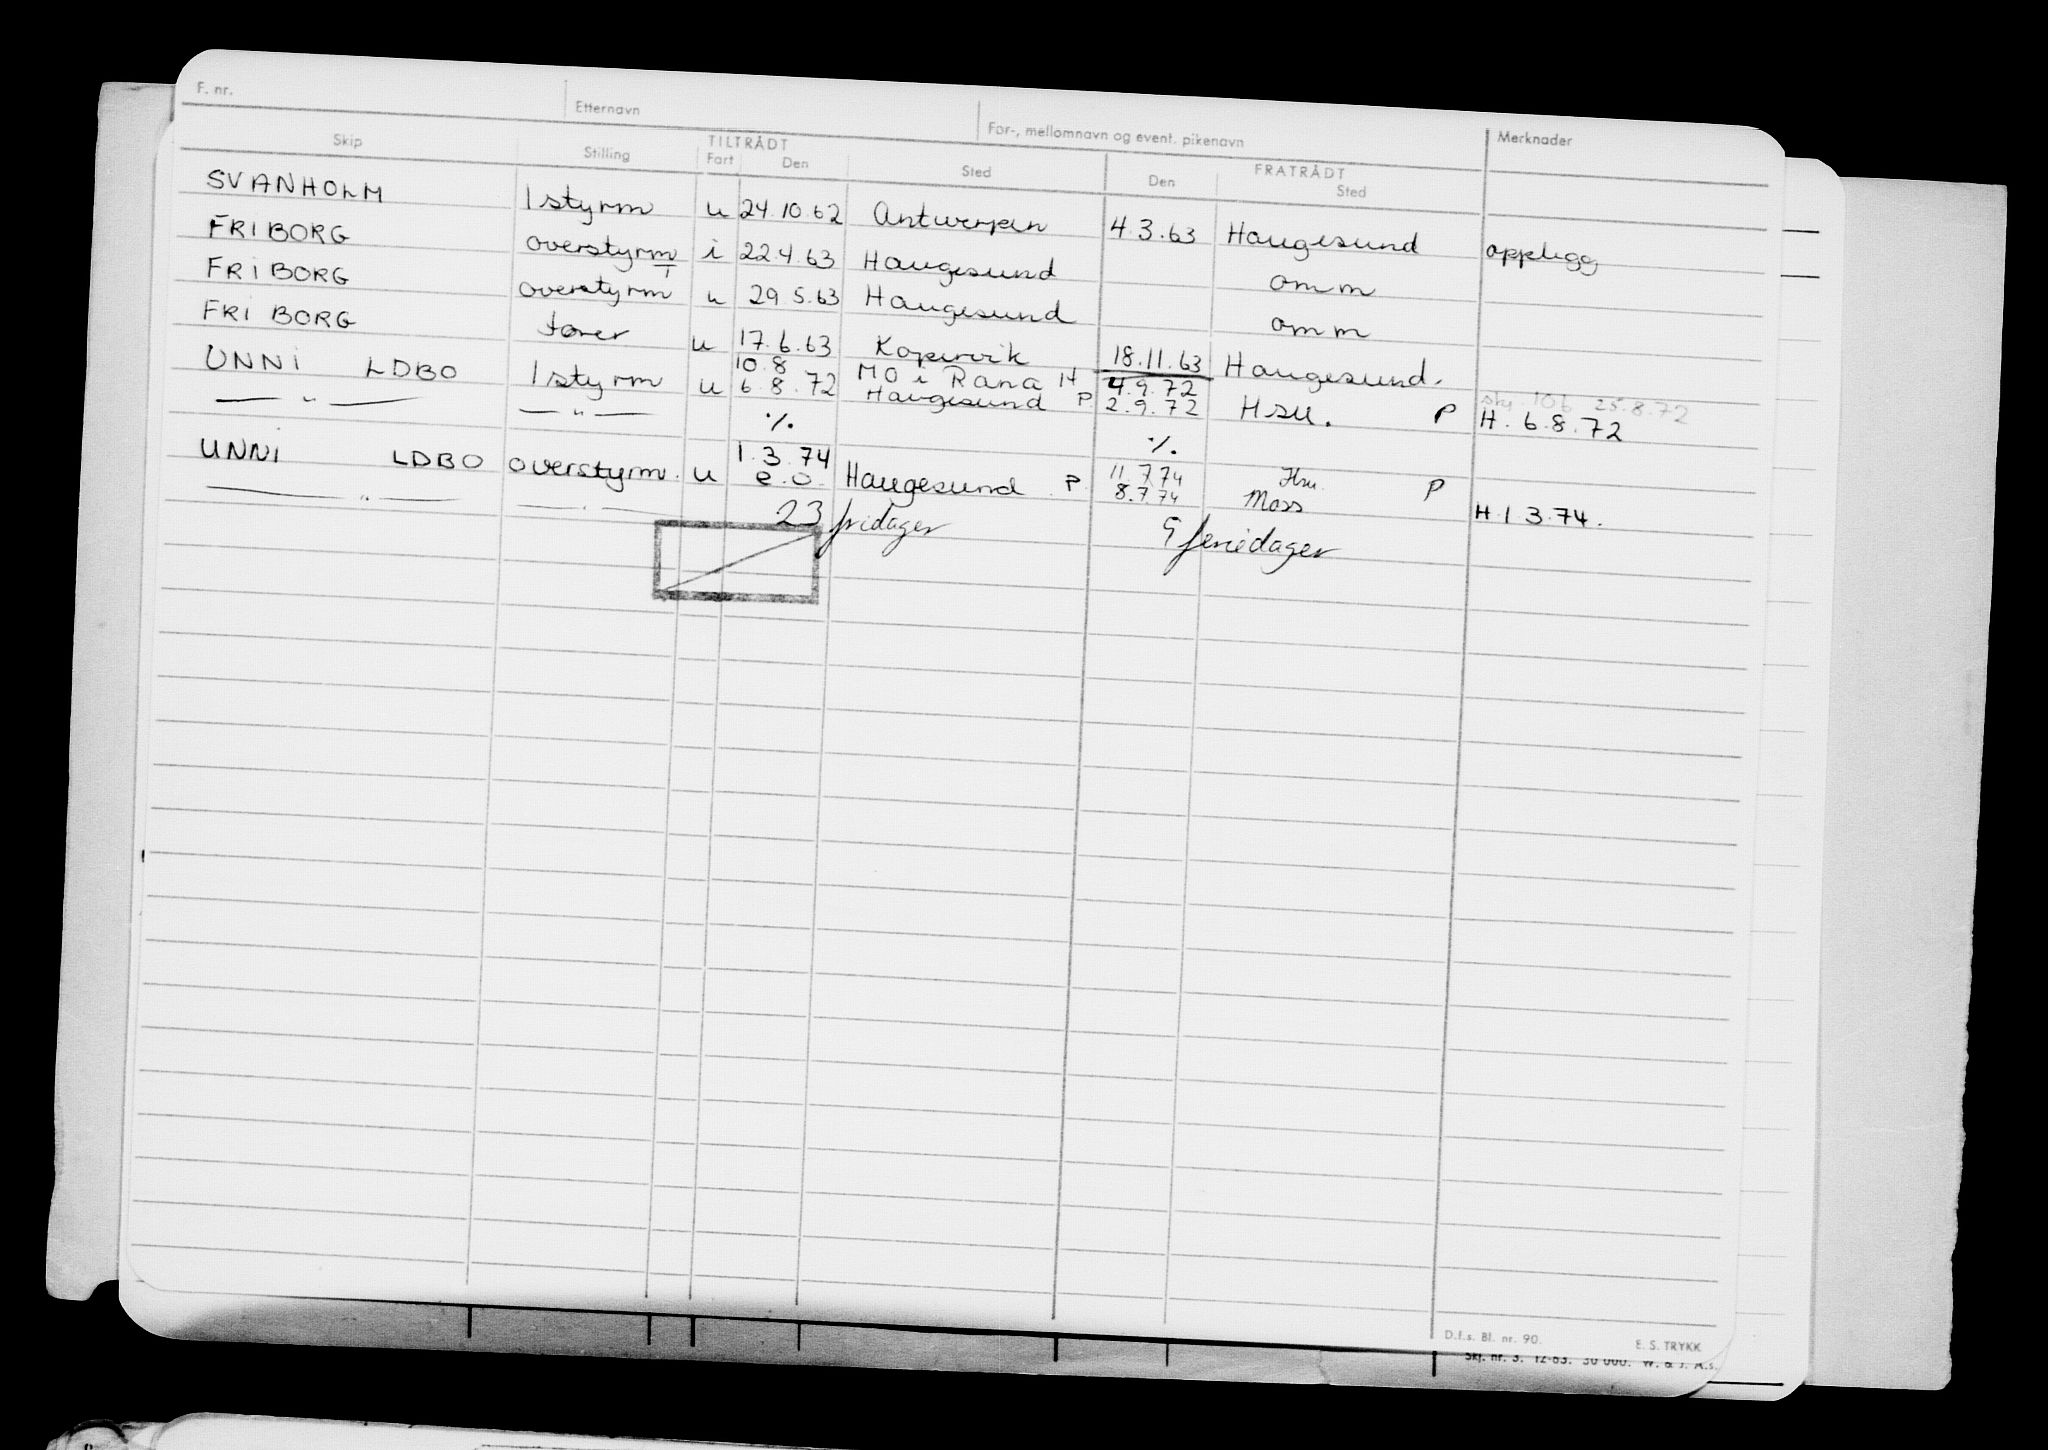 F. nr.
Etternavn
For-, mellomnavn og event. pikenavn
Merknader
Skip
Stilling
TILTRÅDT
Fart
Den
Sted
FRATRÅDT
Den
Sted
SVANHOLM 1 styrm u 24.10.62 Antwerpen 4.3.63 Haugesund opplegg
FRIBORG overstyrm i 22.4.63 Haugesund omm
FRIBORG overstyrm u 29.5.63 Haugesund omm
FRI BORG fører u 17.6.63 Kopervik 18.11.63 Haugesund.
10.8 MO i Rana H 4.9.72 25.8.72
UNNI LDBO 1 styrm u 6.8.72 Haugesund P 2.9.72 Hsu. P H. 6.8.72
— " — — " — ./. ./.
1.3.74 11.7.74 Hsu.
UNNI LDBO overstyrm. u e.o. Haugesund P. 8.7.74 Moss P H.1.3.74.
— " —
23 fridager 9 feriedager
D.f.s. Bl. nr. 90.
E. S. TRYKK
Skj. nr. 3. 12-63. 30 000. W. & J. A.s.